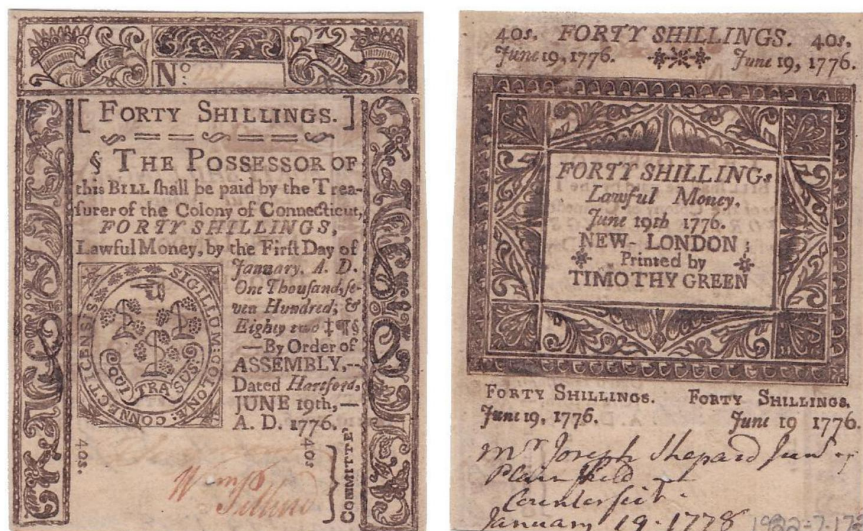 No.
[ FORTY SHILLINGS. ]
§ THE POSSESSOR OF
this BILL shall be paid by the Trea-
surer of the Colony of Connecticut,
FORTY SHILLINGS,
Lawful Money, by the First Day of
January, A. D.
One Thousand, se-
ven Hundred, &
Eighty two ‡¶§
—By Order of
ASSEMBLY,--
Dated Hartford,
JUNE 19th,—
A. D. 1776.
SIGILLUM: COLONIÆ: CONNECTICENSIS
QUI TRA SUS
40s.
40s.
COMMITTEE,
Wm
40s. FORTY SHILLINGS. 40s.
June 19, 1776. *** June 19, 1776.
FORTY SHILLINGs
Lawful Money.
June 19th 1776.
NEW-LONDON;
* Printed by *
TIMOTHY GREEN
FORTY SHILLINGS. FORTY SHILLINGS,
June 19, 1776. June 19 1776.
Mr Joseph Shepard Junr of
Plainfield
Counterfeit
January 19. 1778